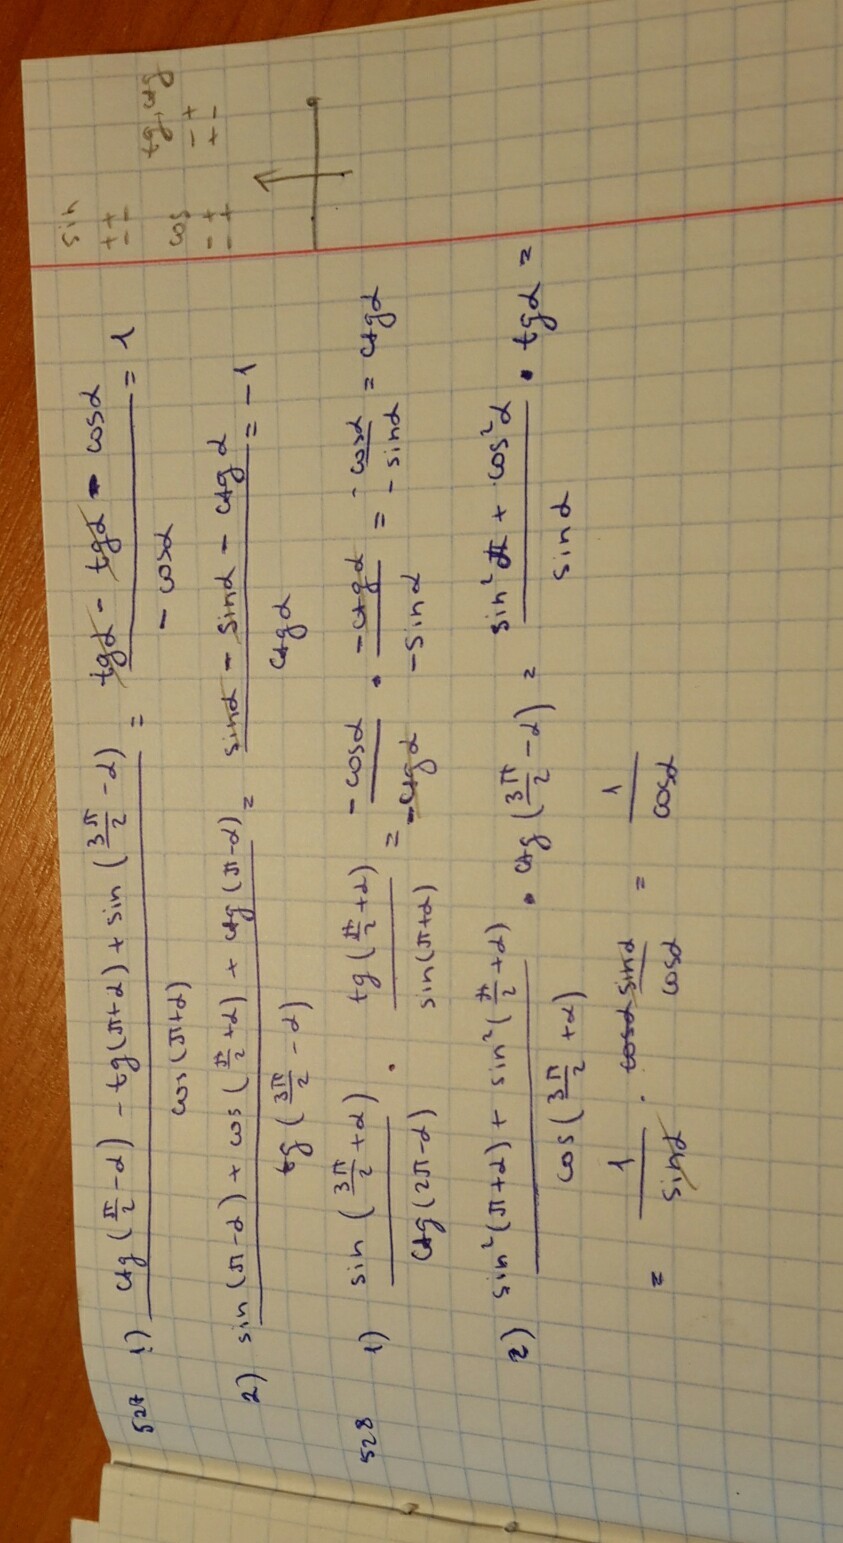 527 1) ctg(π/2 - α) - tg(π+α) + sin(3π/2 - α) / cos(π+α) = tgα - tgα - cosα / - cosα = 1
2) sin(π-α) + cos(π/2 + α) + ctg(π-α) / tg(3π/2 - α) = sinα - sinα - ctgα / ctgα = -1
528 1) sin(3π/2 + α) / ctg(2π-α) · tg(π/2 + α) / sin(π+α) = -cosα / -ctgα · -ctgα / -sinα = -cosα / -sinα = ctgα
2) sin²(π+α) + sin²(π/2 + α) / cos(3π/2 + α) · ctg(3π/2 - α) = sin²α + cos²α / sinα · tgα =
= 1 / sinα · sinα / cosα = 1 / cosα
sin
+ +
- -
cos
- +
- +
tg, ctg
- +
+ -